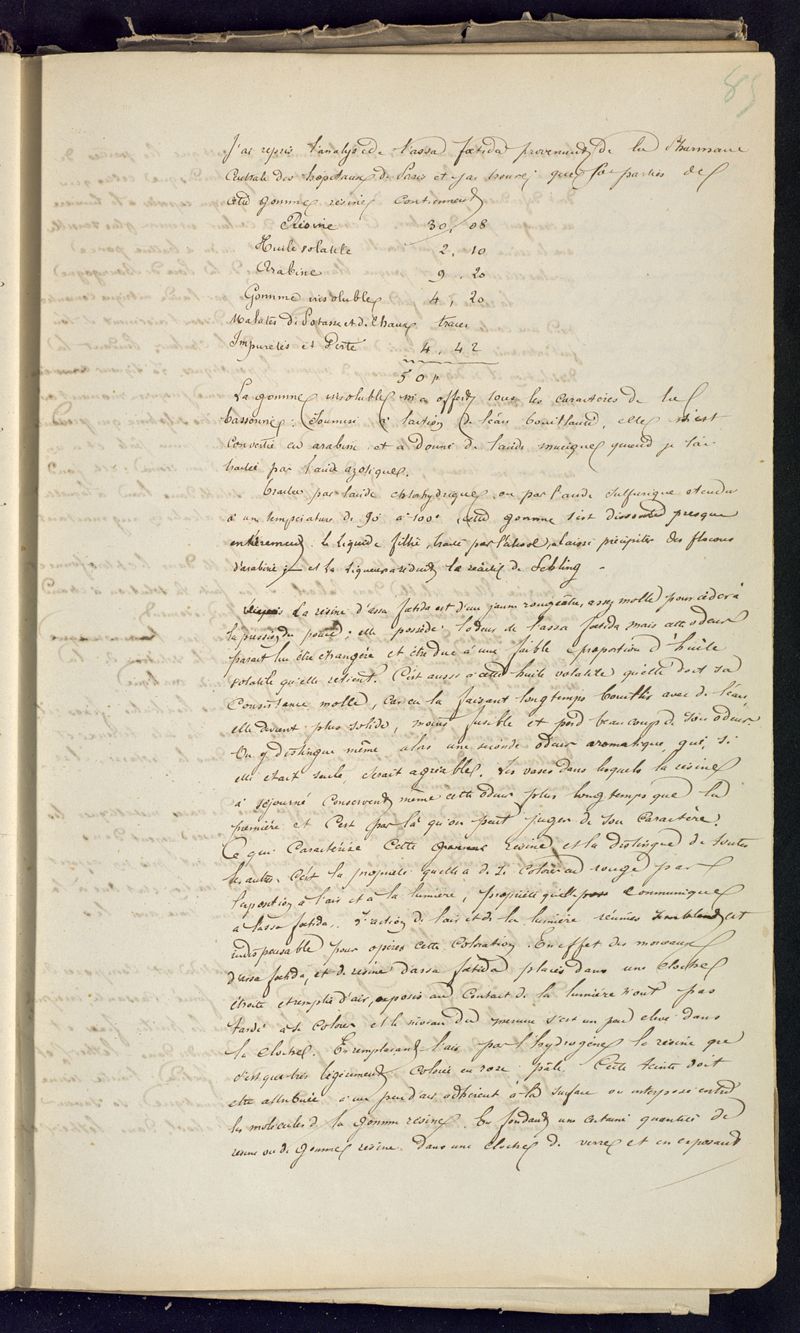 85
J'ai repris l'analyse de l'assa foetida provenant de la Pharmacie
Centrale des hôpitaux de Paris et j'ai trouvé que 50 parties de
cette gomme résine contiennent
Résine 30,08
Huile volatile 2,10
Arabine 9,20
Gomme insoluble 4,20
Malates de Potasse et de Chaux traces
Impuretés et Perte 4,42
50 p
La gomme insoluble m'a offert tous les caractères de la
bassorine. Soumise à l'action de l'eau bouillante, elle s'est
convertie en arabine et a donné de l'acide mucique quand je l'ai
traitée par l'acide azotique.
Traitée par l'acide chlorhydrique ou par l'acide sulfurique étendu
à une température de 90 à 100° cette gomme s'est dissoute presque
entièrement. le liquide filtré, traité par l'alcool, a laissé précipiter des flocons
d'arabine et la liqueur a réduit le réactif de Fehling.
La résine d'assa foetida est d'un jaune rougeâtre, assez molle pour céder à
la pression du pouce; elle possède l'odeur de l'assa foetida mais cette odeur
parait lui être étrangère et être due à une faible proportion d'huile
volatile qu'elle retient. C'est aussi à cette huile volatile qu'elle doit sa
consistance molle, car en la faisant longtemps bouillir avec de l'eau
elle devient plus solide, moins fusible et perd beaucoup de son odeur
On y distingue même alors une seconde odeur aromatique, qui, si
elle était seule, serait agréable. Les vases dans lesquels la résine
a séjourné conservent même cette odeur plus longtemps que la
première et c'est par là qu'on peut juger de son caractère.
Ce qui caractérise cette résine et la distingue de toutes
les autres c'est la propriété qu'elle a de se colorer en rouge par
l'exposition à l'air et à la lumière, propriété qu'elle communique
à l'assa foetida. L'action de l'air et de la lumière réunies semblent est
indispensable pour opérer cette coloration. En effet des morceaux
d'assa foetida, et de résine d'assa foetida placés dans une cloche
étroite et remplie d'air, exposés au contact de la lumière n'ont pas
tardé à se colorer et le niveau du mercure s'est un peu élevé dans
la cloche. En remplaçant l'air par l'hydrogène la résine que
n'est que très légèrement colorée en rose pâle. Cette teinte doit
être attribuée à un peu d'air adhérent à la surface ou interposé entre
les molécules de la gomme résine. En fondant une certaine quantité de
résine ou de gomme résine dans une cloche de verre et en exposant